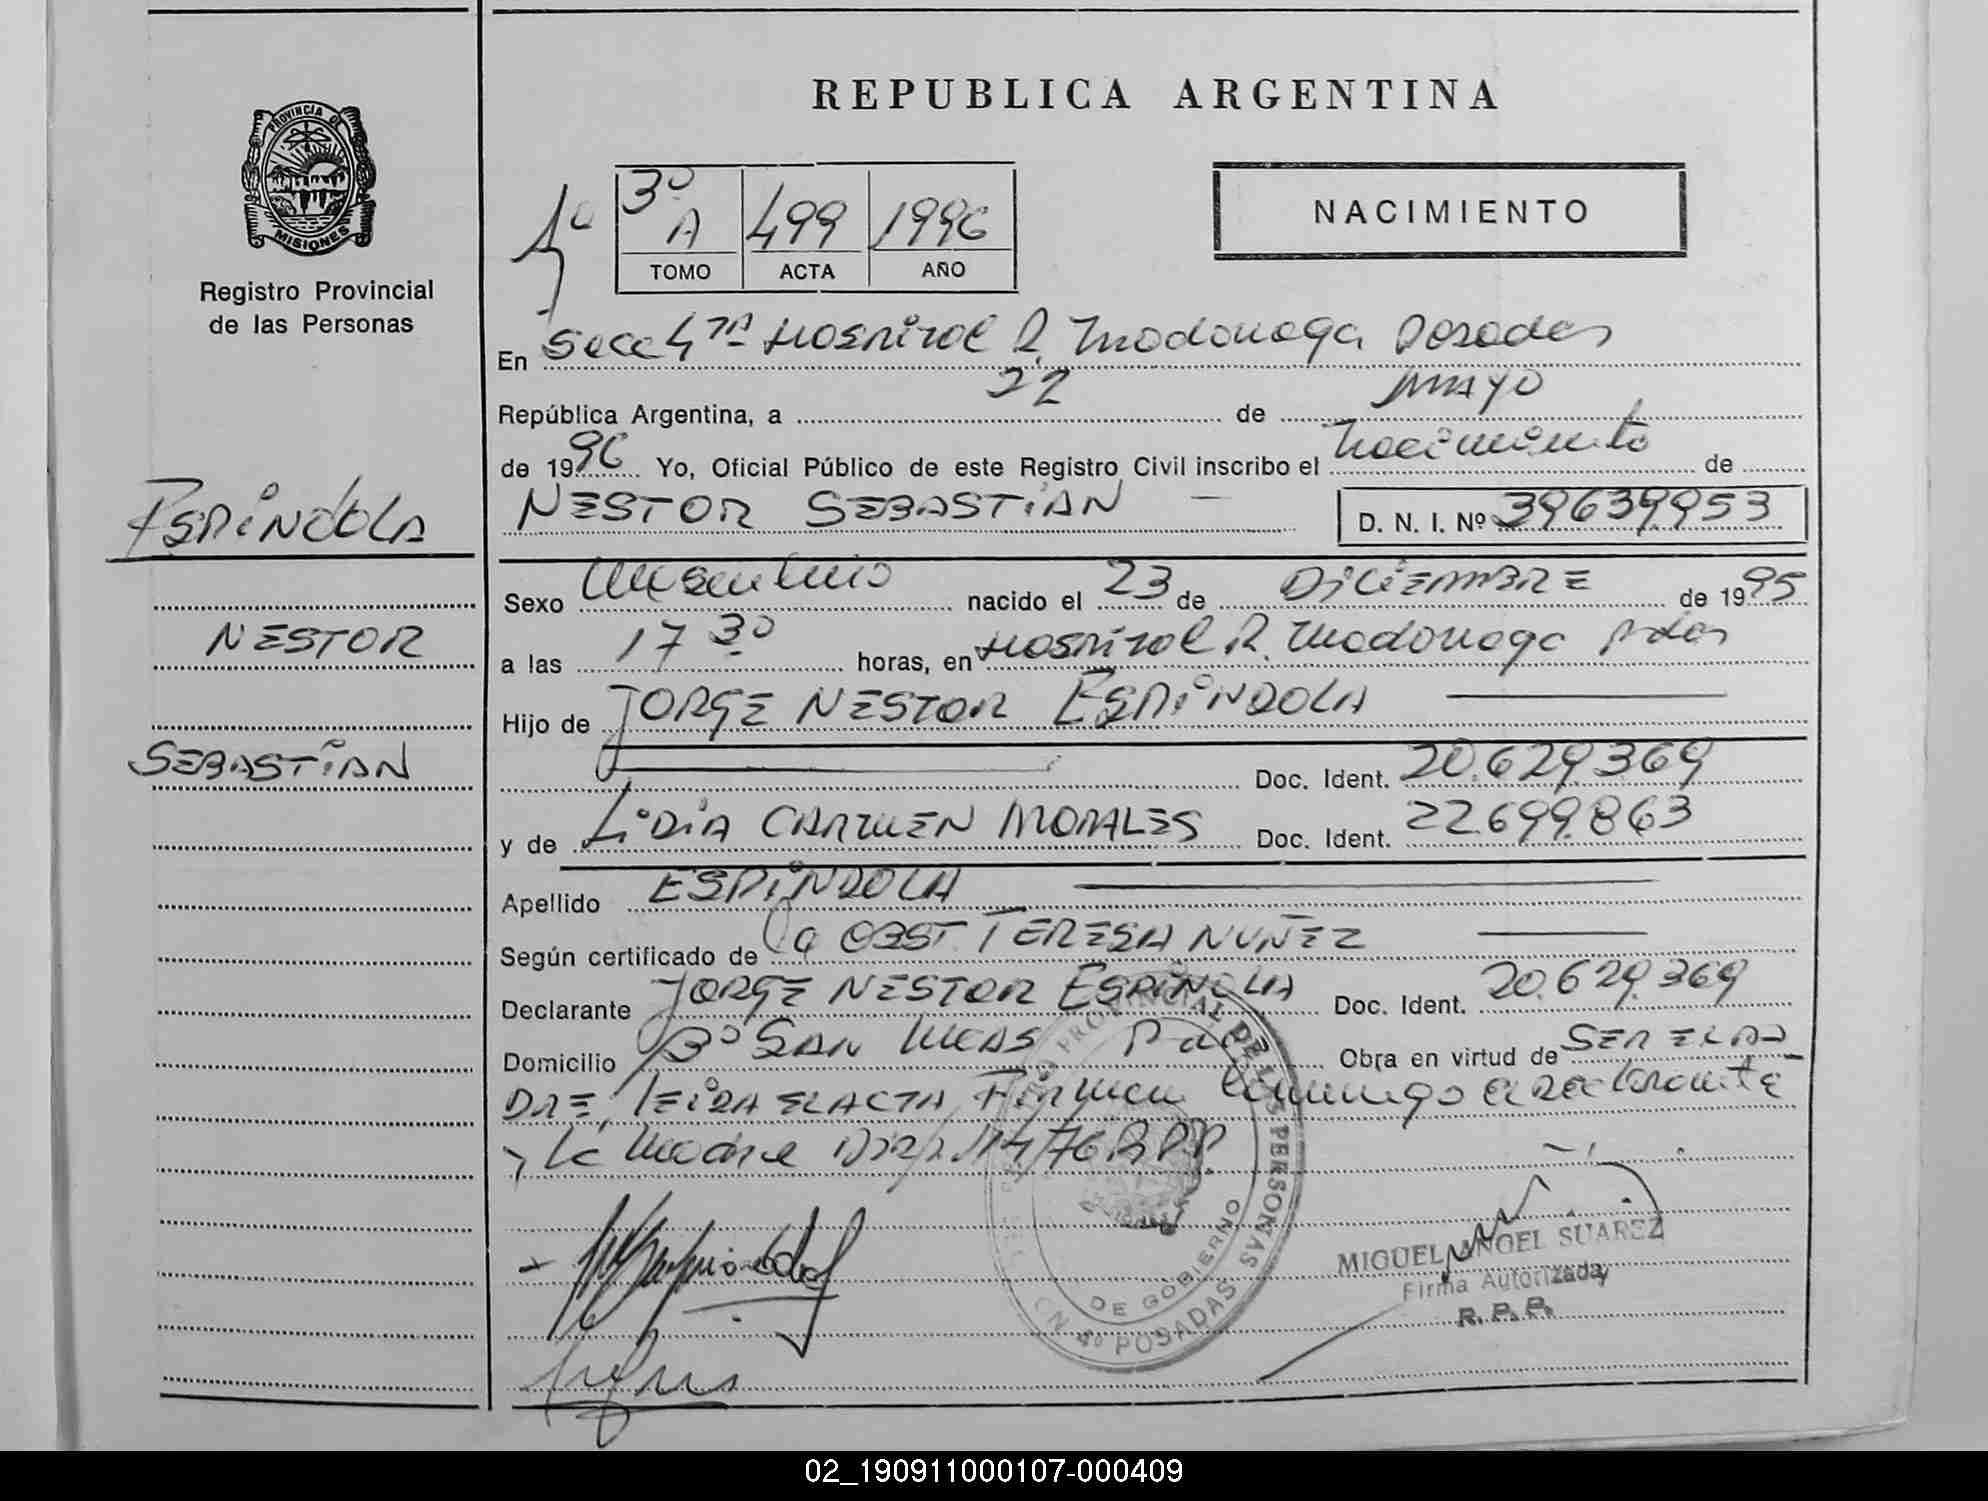 REPUBLICA ARGENTINA
PROVINCIA DE
MISIONES
Registro Provincial
de las Personas
4º
3º A 499 1996
TOMO ACTA AÑO
NACIMIENTO
En Secc 4ta Hospital R. Madonaga Posadas
República Argentina, a 22 de MAYO
de 1996 Yo, Oficial Público de este Registro Civil inscribo el Nacimiento de
ESPINDOLA
NESTOR SEBASTIAN — D. N. I. Nº 39639953
Sexo Masculino nacido el 23 de DICIEMBRE de 1995
NESTOR
a las 17 30 horas, en Hospital R. Madonaga Pdas
Hijo de JORGE NESTOR ESPINDOLA
SEBASTIAN
Doc. Ident. 20.629.369
y de LIDIA CARMEN MORALES Doc. Ident. 22.699.863
Apellido ESPINDOLA
Según certificado de la OBST TERESA NUÑEZ
Declarante JORGE NESTOR ESPINOLA Doc. Ident. 20.629.369
Domicilio Bº SAN LUCAS Obra en virtud de SER EL PA-
DRE, LEIDA EL ACTA Firman conmigo el declarante
y la Madre 1476 R.P.P.
DE LAS PERSONAS
DE GOBIERNO
4º POSADAS
MIGUEL ANGEL SUAREZ
Firma Autorizada
R. P. P.
02_190911000107-000409